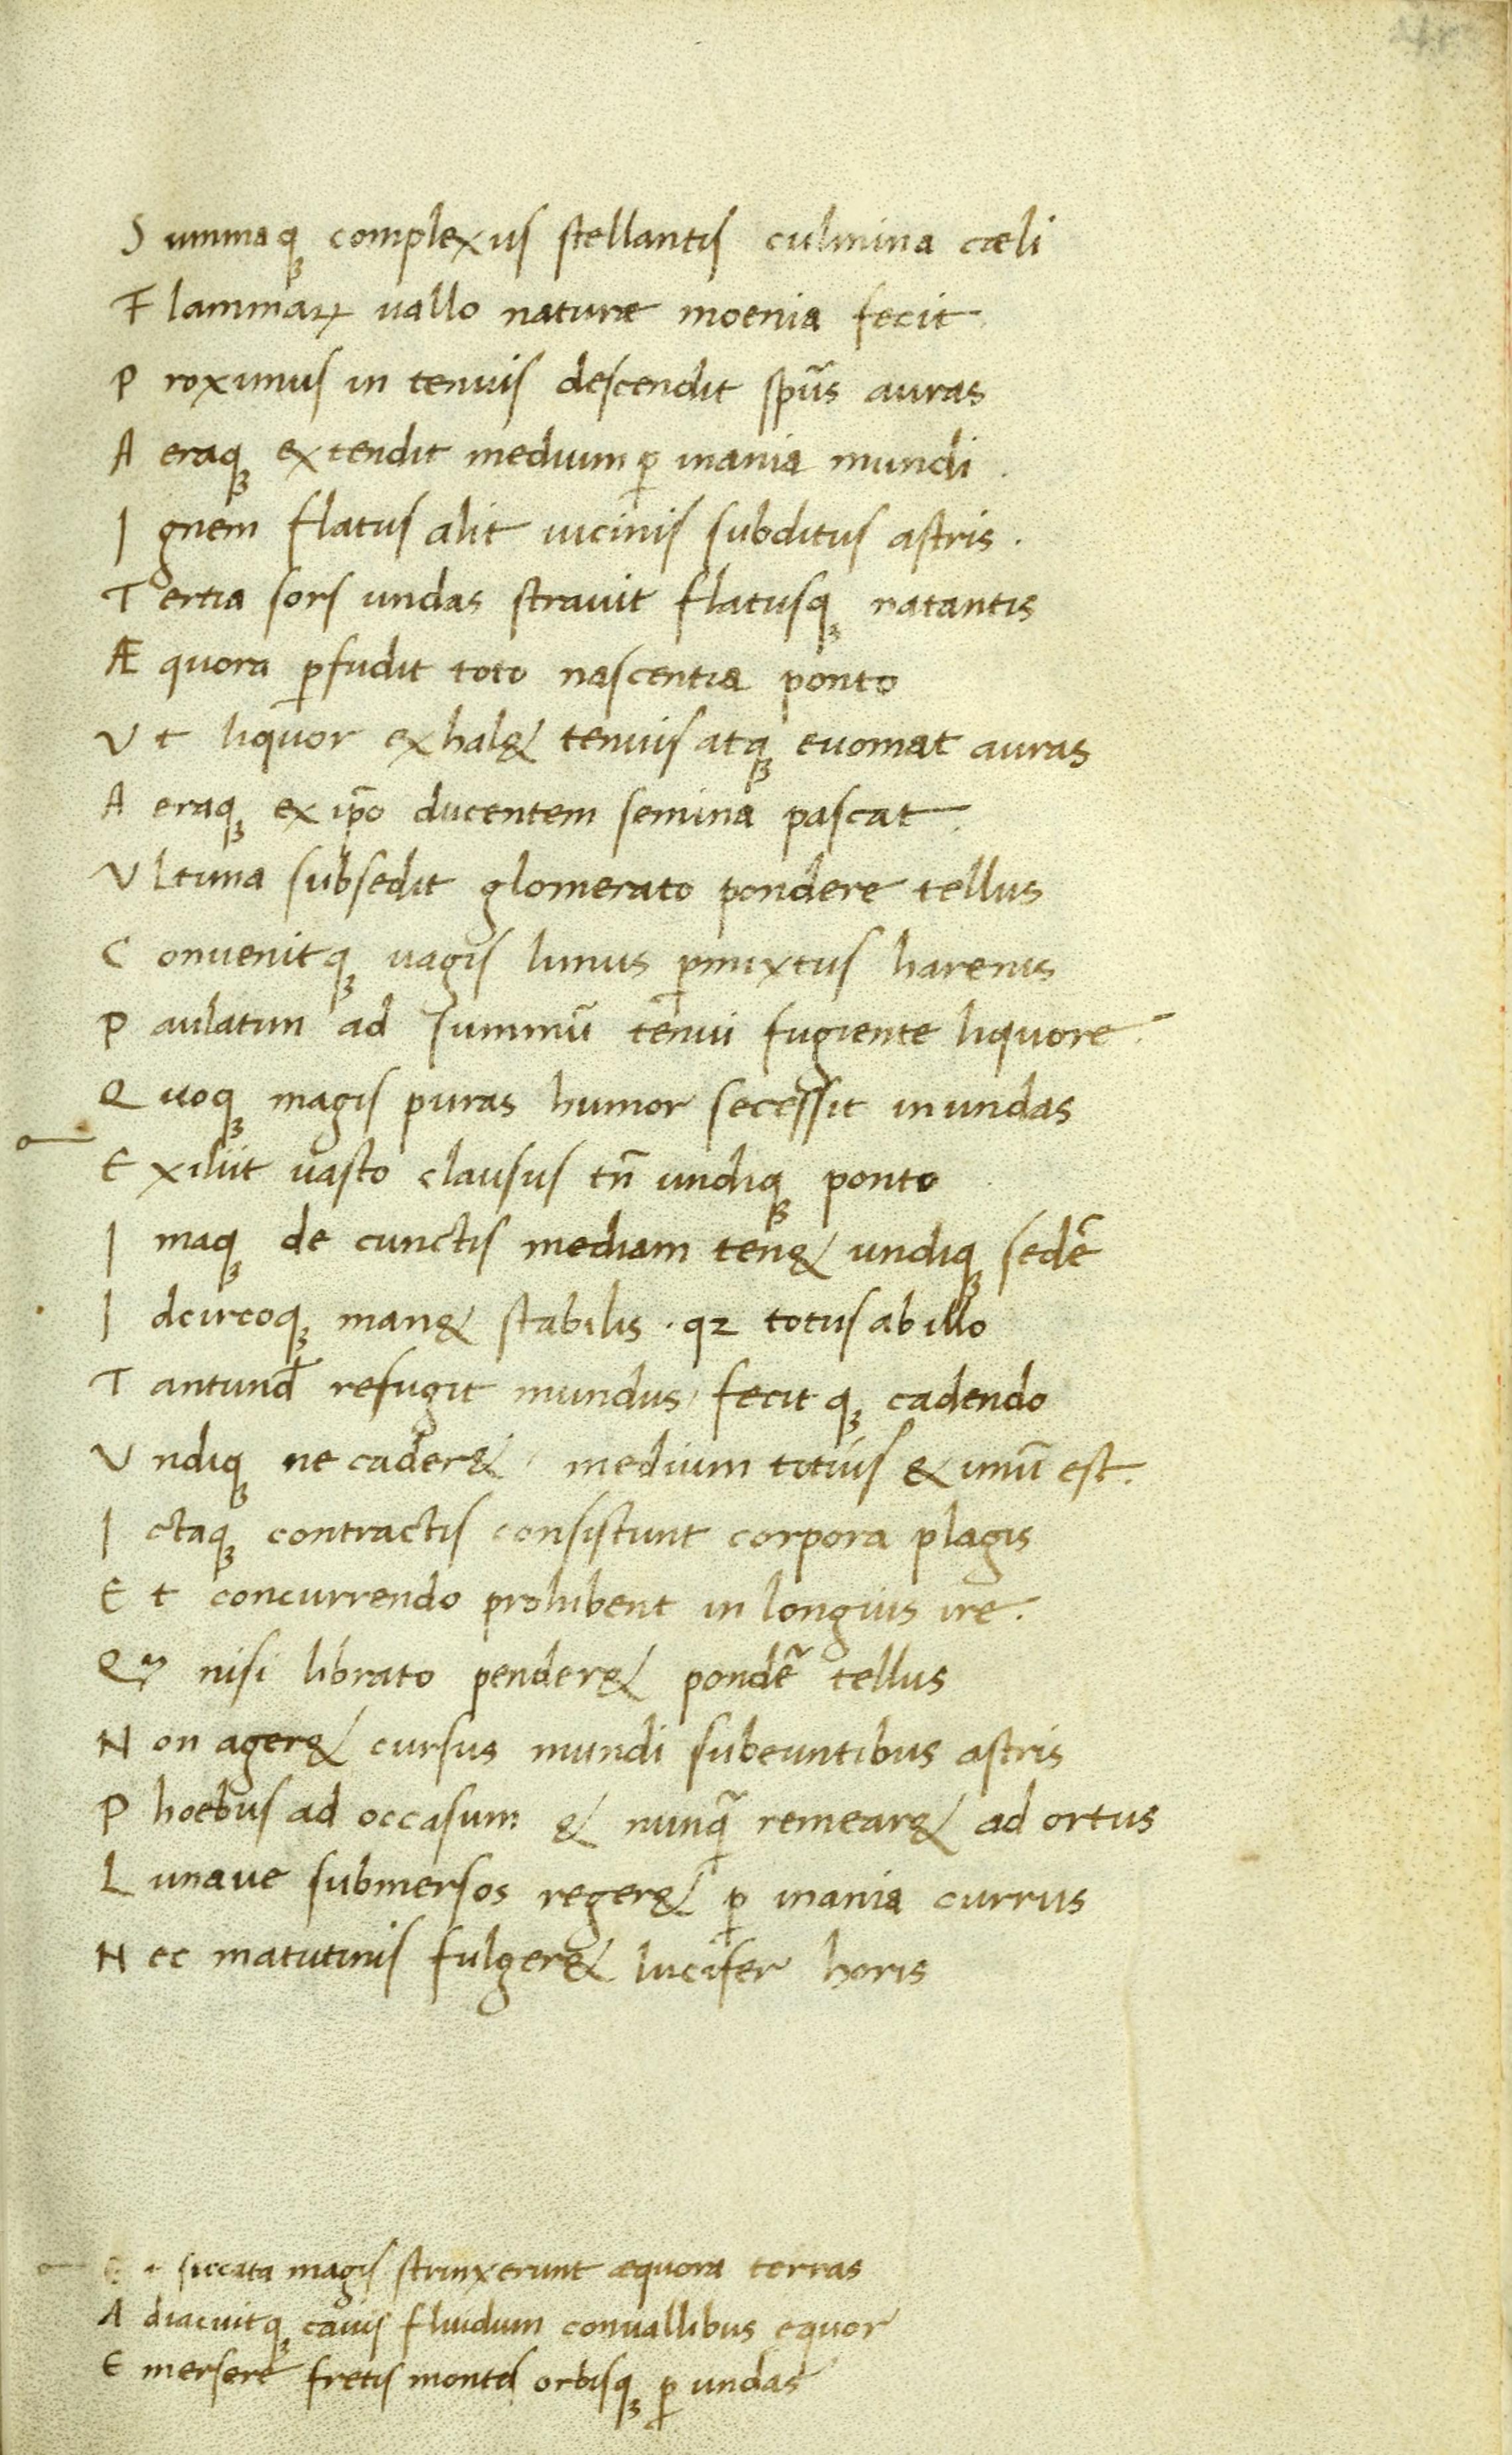 Summaqꝫ complexus stellantis culmina cæli
Flammaꝝ uallo naturæ moenia fecit
Proximus in tenuis descendit sp̄us auras
Aeraqꝫ extendit medium ꝑ inania mundi.
Ignem flatus alit uicinis subditus astris.
Tertia sors undas strauit flatusqꝫ natantis
Æquora ꝑfudit toto nascentia ponto
Vt liquor exhal& tenuis atqꝫ euomat auras
Aeraqꝫ ex ip̄o ducentem semina pascat.
Vltima subsedit glomerato pondere tellus
Conuenitqꝫ uagis limus ꝑmixtus harenis
Paulatim ad summū tenui fugiente liquore.
Quoqꝫ magis puras humor secessit in undas
Exiliit uasto clausus tn̄ undiqꝫ ponto
Imaqꝫ de cunctis mediam ten& undiqꝫ sedē
Idcircoqꝫ man& stabilis. qꝛ totus ab illo
Tantund̄ refugit mundus, fecitqꝫ cadendo
Vndiqꝫ ne cader&, medium totius & imū est.
Ictaqꝫ contractis consistunt corpora plagis
Et concurrendo prohibent in longius ire.
Qꝫ nisi librato pender& pondē tellus
Non ager& cursus mundi subeuntibus astris
Phoebus ad occasum & nunq̄ remear& ad ortus
Lunaue submersos reger& ꝑ inania currus
Nec matutinis fulger& lucifer horis
Et siccata magis strinxerunt æquora terras
Adiacuitqꝫ cauis fluidum conuallibus equor
Emersere fretis montes orbisqꝫ ꝑ undas